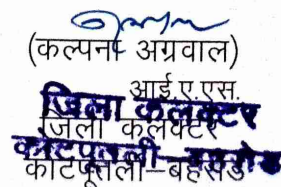 (कल्पना अग्रवाल)
आई.ए.एस.
जिला कलक्टर
जिला कलक्टर
कोटपूतली-बहरोड
कोटपूतली-बहरोड